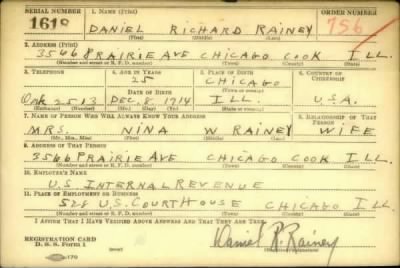 SERIAL NUMBER 1. NAME (Print) ORDER NUMBER
1618 DANIEL RICHARD RAINEY 756
(First) (Middle) (Last)
2. ADDRESS (Print)
3566 PRAIRIE AVE CHICAGO COOK ILL.
(Number and street or R. F. D. number) (Town) (County) (State)
3. TELEPHONE 4. AGE IN YEARS 5. PLACE OF BIRTH 6. COUNTRY OF CITIZENSHIP
25 CHICAGO
DATE OF BIRTH (Town or county)
2513 DEC. 8 1914 ILL. U.S.A.
(Exchange) (Number) (Mo.) (Day) (Yr.) (State or country)
7. NAME OF PERSON WHO WILL ALWAYS KNOW YOUR ADDRESS 8. RELATIONSHIP OF THAT PERSON
MRS. NINA W RAINEY WIFE
(Mr., Mrs., Miss) (First) (Middle) (Last)
9. ADDRESS OF THAT PERSON
3566 PRAIRIE AVE CHICAGO COOK ILL.
(Number and street or R. F. D. number) (Town) (County) (State)
10. EMPLOYER'S NAME
U.S. INTERNAL REVENUE
11. PLACE OF EMPLOYMENT OR BUSINESS
528 U.S. COURT HOUSE CHICAGO ILL.
(Number and street or R. F. D. number) (Town) (County) (State)
I AFFIRM THAT I HAVE VERIFIED ABOVE ANSWERS AND THAT THEY ARE TRUE.
REGISTRATION CARD
D. S. S. FORM 1 Daniel R. Rainey